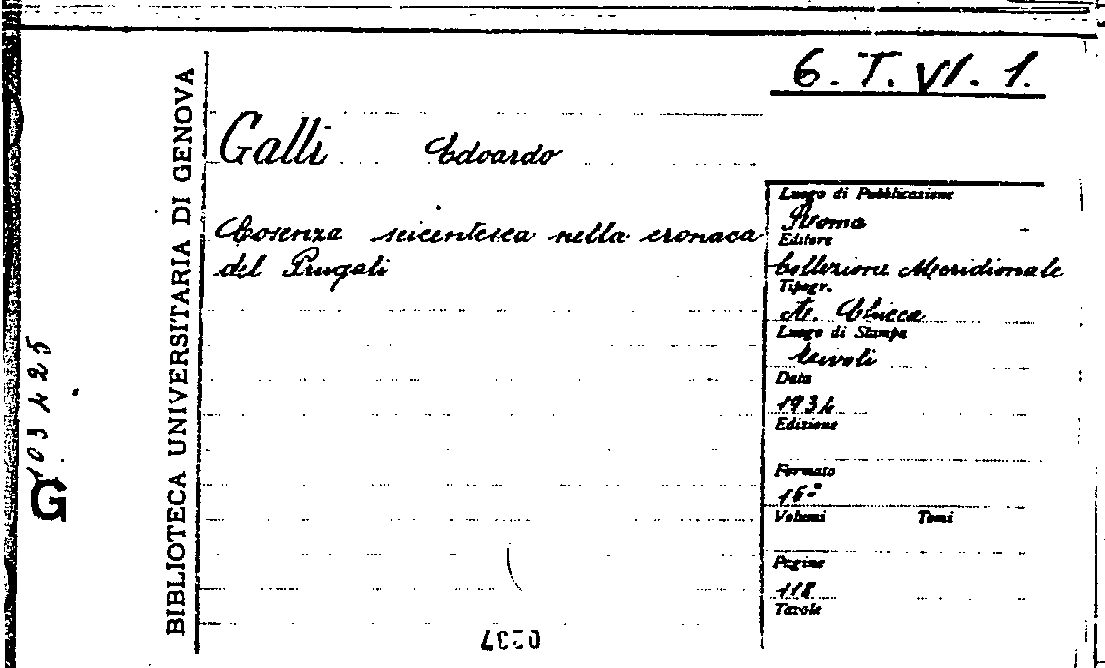 6. T. VI. 1.
BIBLIOTECA UNIVERSITARIA DI GENOVA
Galli Edoardo
Cosenza seicentesca nella cronaca
del Frugali
Luogo di Pubblicazione
Roma
Editore
Collezione Meridionale
Tipogr.
A. Chicca
Luogo di Stampa
Tivoli
Data
1934
Edizione
Formato
16º
Volumi Tomi
Pagine
118
Tavole
G 103425
0237